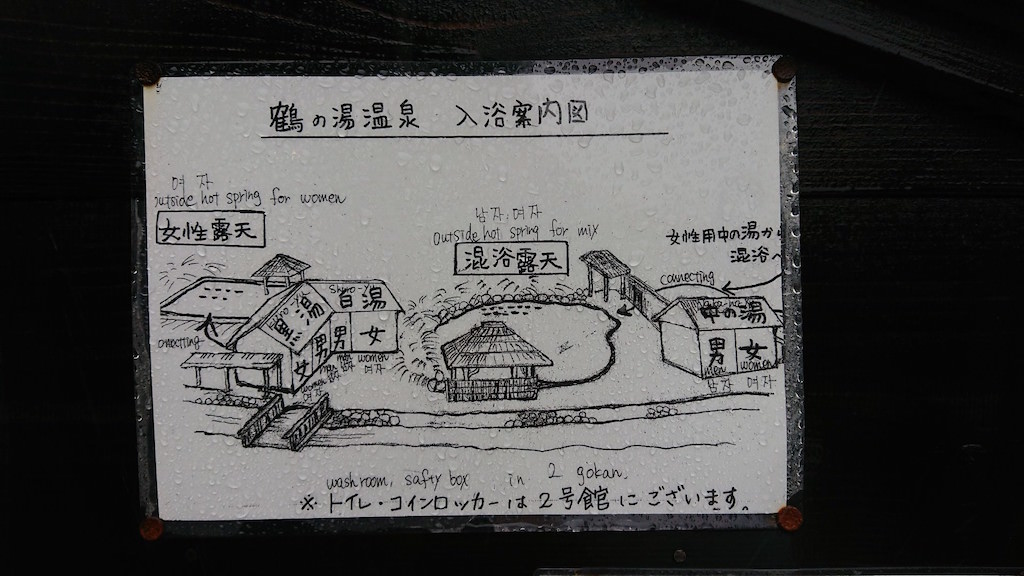 鶴の湯温泉 入浴案内図
여 자
outside hot spring for women
女性露天
남자, 여자
outside hot spring for mix
混浴露天
女性用中の湯か
混浴へ
connecting
黒湯
白湯
中の湯
onnecting
女
男
男
女
women
men
men
women
여자
남자
남자
여자
男
女
men
women
남자
여자
washroom, safty box in 2 gokan.
※ トイレ・コインロッカーは2号館にございます。